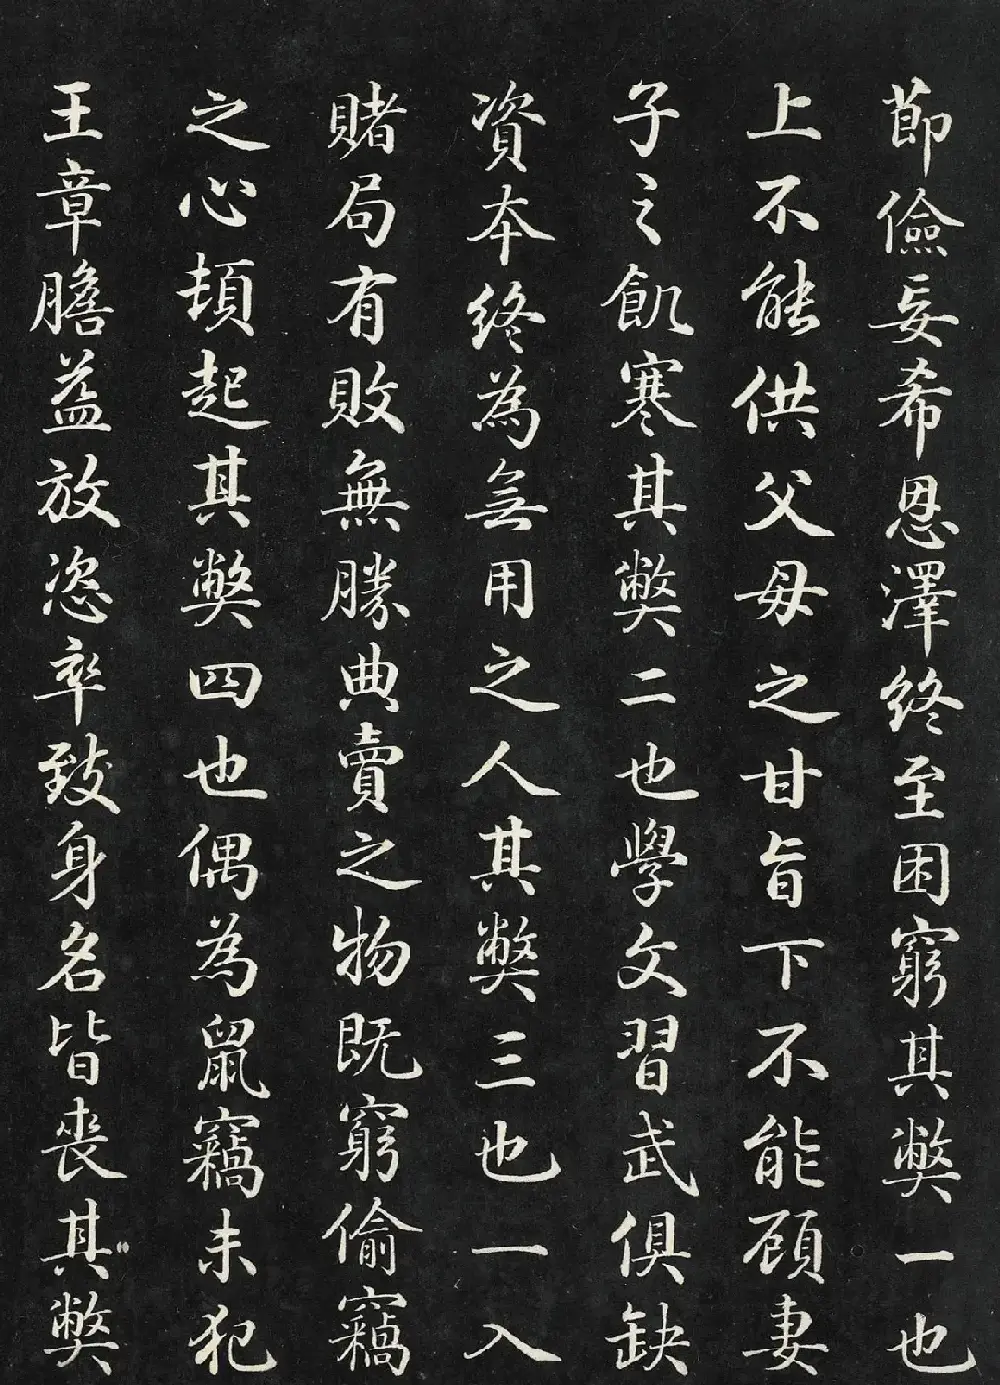 節儉妄希恩澤終至困窮其弊一也
上不能供父母之甘旨下不能顧妻
子之飢寒其弊二也學文習武俱缺
資本終為無用之人其弊三也一入
賭局有敗無勝典賣之物既窮偷竊
之心頓起其弊四也偶為鼠竊未犯
王章膽益放恣卒致身名皆喪其弊